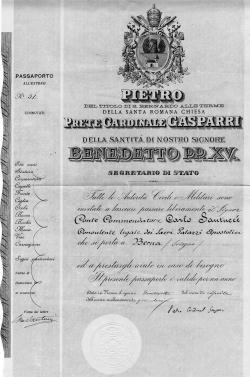 PASSAPORTO
ALL'ESTERO
N. 51.
CONNOTATI
PIETRO
DEL TITOLO DI S. BERNARDO ALLE TERME
DELLA SANTA ROMANA CHIESA
PRETE CARDINALE GASPARRI
DELLA SANTITÁ DI NOSTRO SIGNORE
BENEDETTO PP. XV.
SEGRETARIO DI STATO
Tutte le Autorità Civili e Militari sono
invitate a lasciar passare liberamente il Signor
Conte Commendatore Carlo Santucci
Consulente legale dei Sacri Palazzi Apostolici
che si porta a Berna (Svizzera)
ed a prestargli aiuto in caso di bisogno
Il presente passaporto è valido per un anno
Età anni
Statura
Capelli
Fronte
Ciglia
Occhi
Naso
Bocca
Barba
Mento
Viso
Carnagione
Segni particolari
Firma del latore